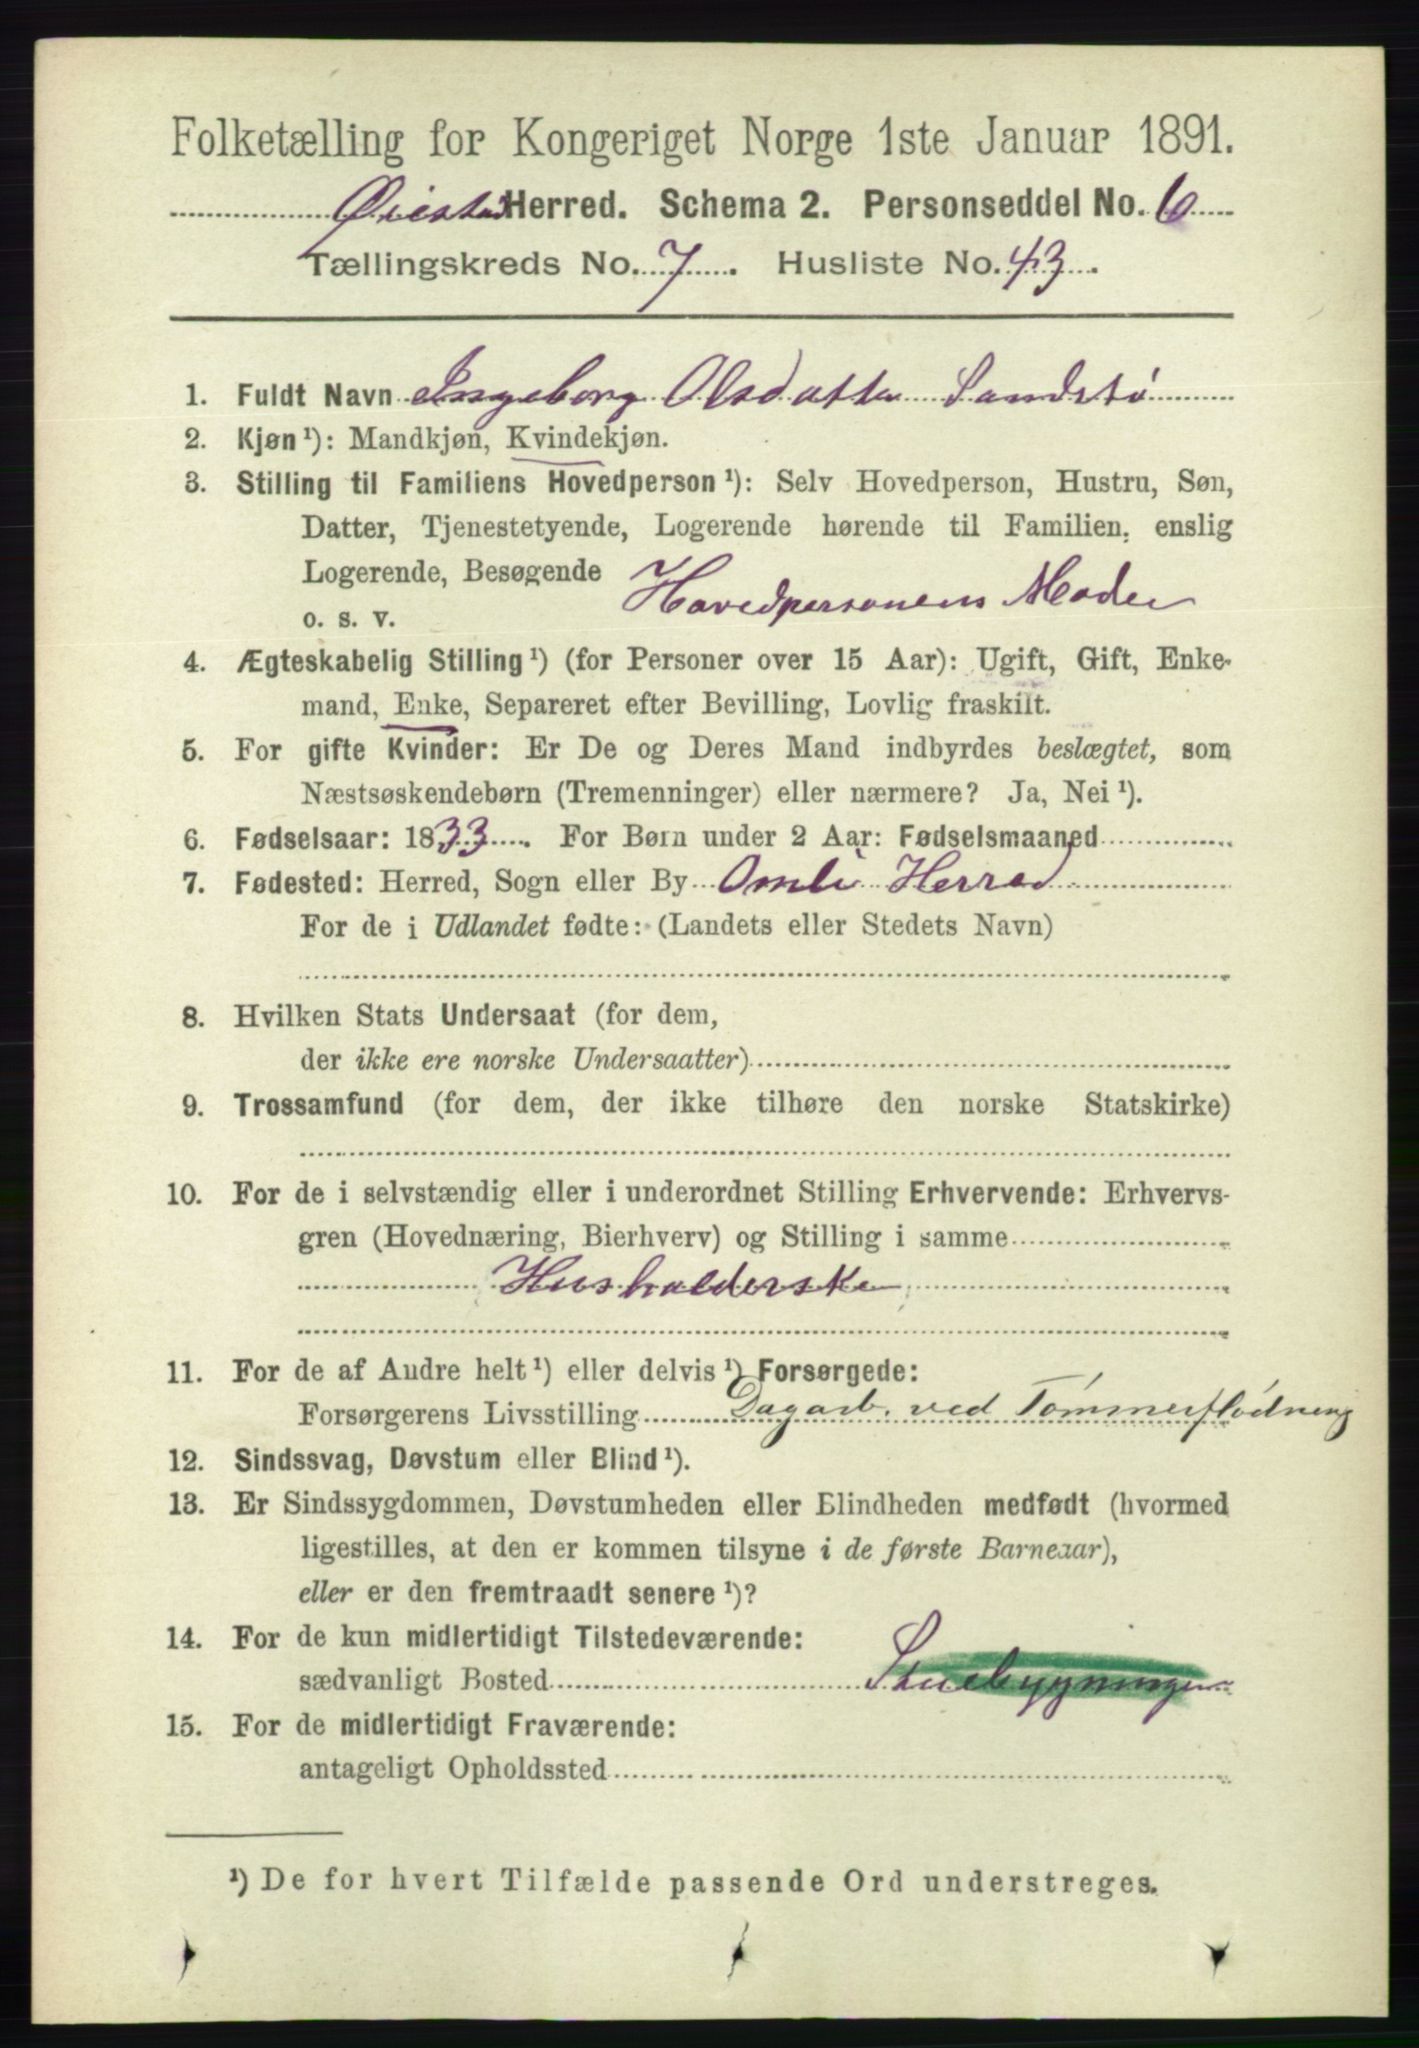 Folketælling for Kongeriget Norge 1ste Januar 1891.
Øiestad Herred. Schema 2. Personseddel No. 6
Tællingskreds No. 7. Husliste No. 43.
1. Fuldt Navn Ingeborg Olsdatter Sandstø
2. Kjøn¹): Mandkjøn, Kvindekjøn.
3. Stilling til Familiens Hovedperson¹): Selv Hovedperson, Hustru, Søn,
Datter, Tjenestetyende, Logerende hørende til Familien, enslig
Logerende, Besøgende
o. s. v. Hovedpersonens Moder
4. Ægteskabelig Stilling¹) (for Personer over 15 Aar): Ugift, Gift, Enke-
mand, Enke, Separeret efter Bevilling, Lovlig fraskilt.
5. For gifte Kvinder: Er De og Deres Mand indbyrdes beslægtet, som
Næstsøskendebørn (Tremenninger) eller nærmere? Ja, Nei¹).
6. Fødselsaar: 1833. For Børn under 2 Aar: Fødselsmaaned
7. Fødested: Herred, Sogn eller By Omli Herred
For de i Udlandet fødte: (Landets eller Stedets Navn)
8. Hvilken Stats Undersaat (for dem,
der ikke ere norske Undersaatter)
9. Trossamfund (for dem, der ikke tilhøre den norske Statskirke)
10. For de i selvstændig eller i underordnet Stilling Erhvervende: Erhvervs-
gren (Hovednæring, Bierhverv) og Stilling i samme
Husholderske
11. For de af Andre helt¹) eller delvis¹) Forsørgede:
Forsørgerens Livsstilling Dagarb. ved Tømmerflødning
12. Sindssvag, Døvstum eller Blind¹).
13. Er Sindssygdommen, Døvstumheden eller Blindheden medfødt (hvormed
ligestilles, at den er kommen tilsyne i de første Barneaar),
eller er den fremtraadt senere¹)?
14. For de kun midlertidigt Tilstedeværende:
sædvanligt Bosted Stuebygningen
15. For de midlertidigt Fraværende:
antageligt Opholdssted
¹) De for hvert Tilfælde passende Ord understreges.